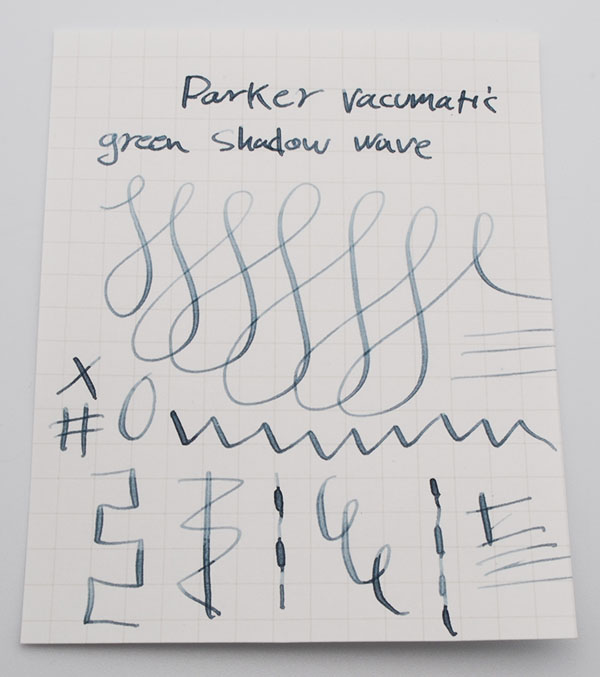 Parker Vacumatic
green Shadow wave
X
# 0